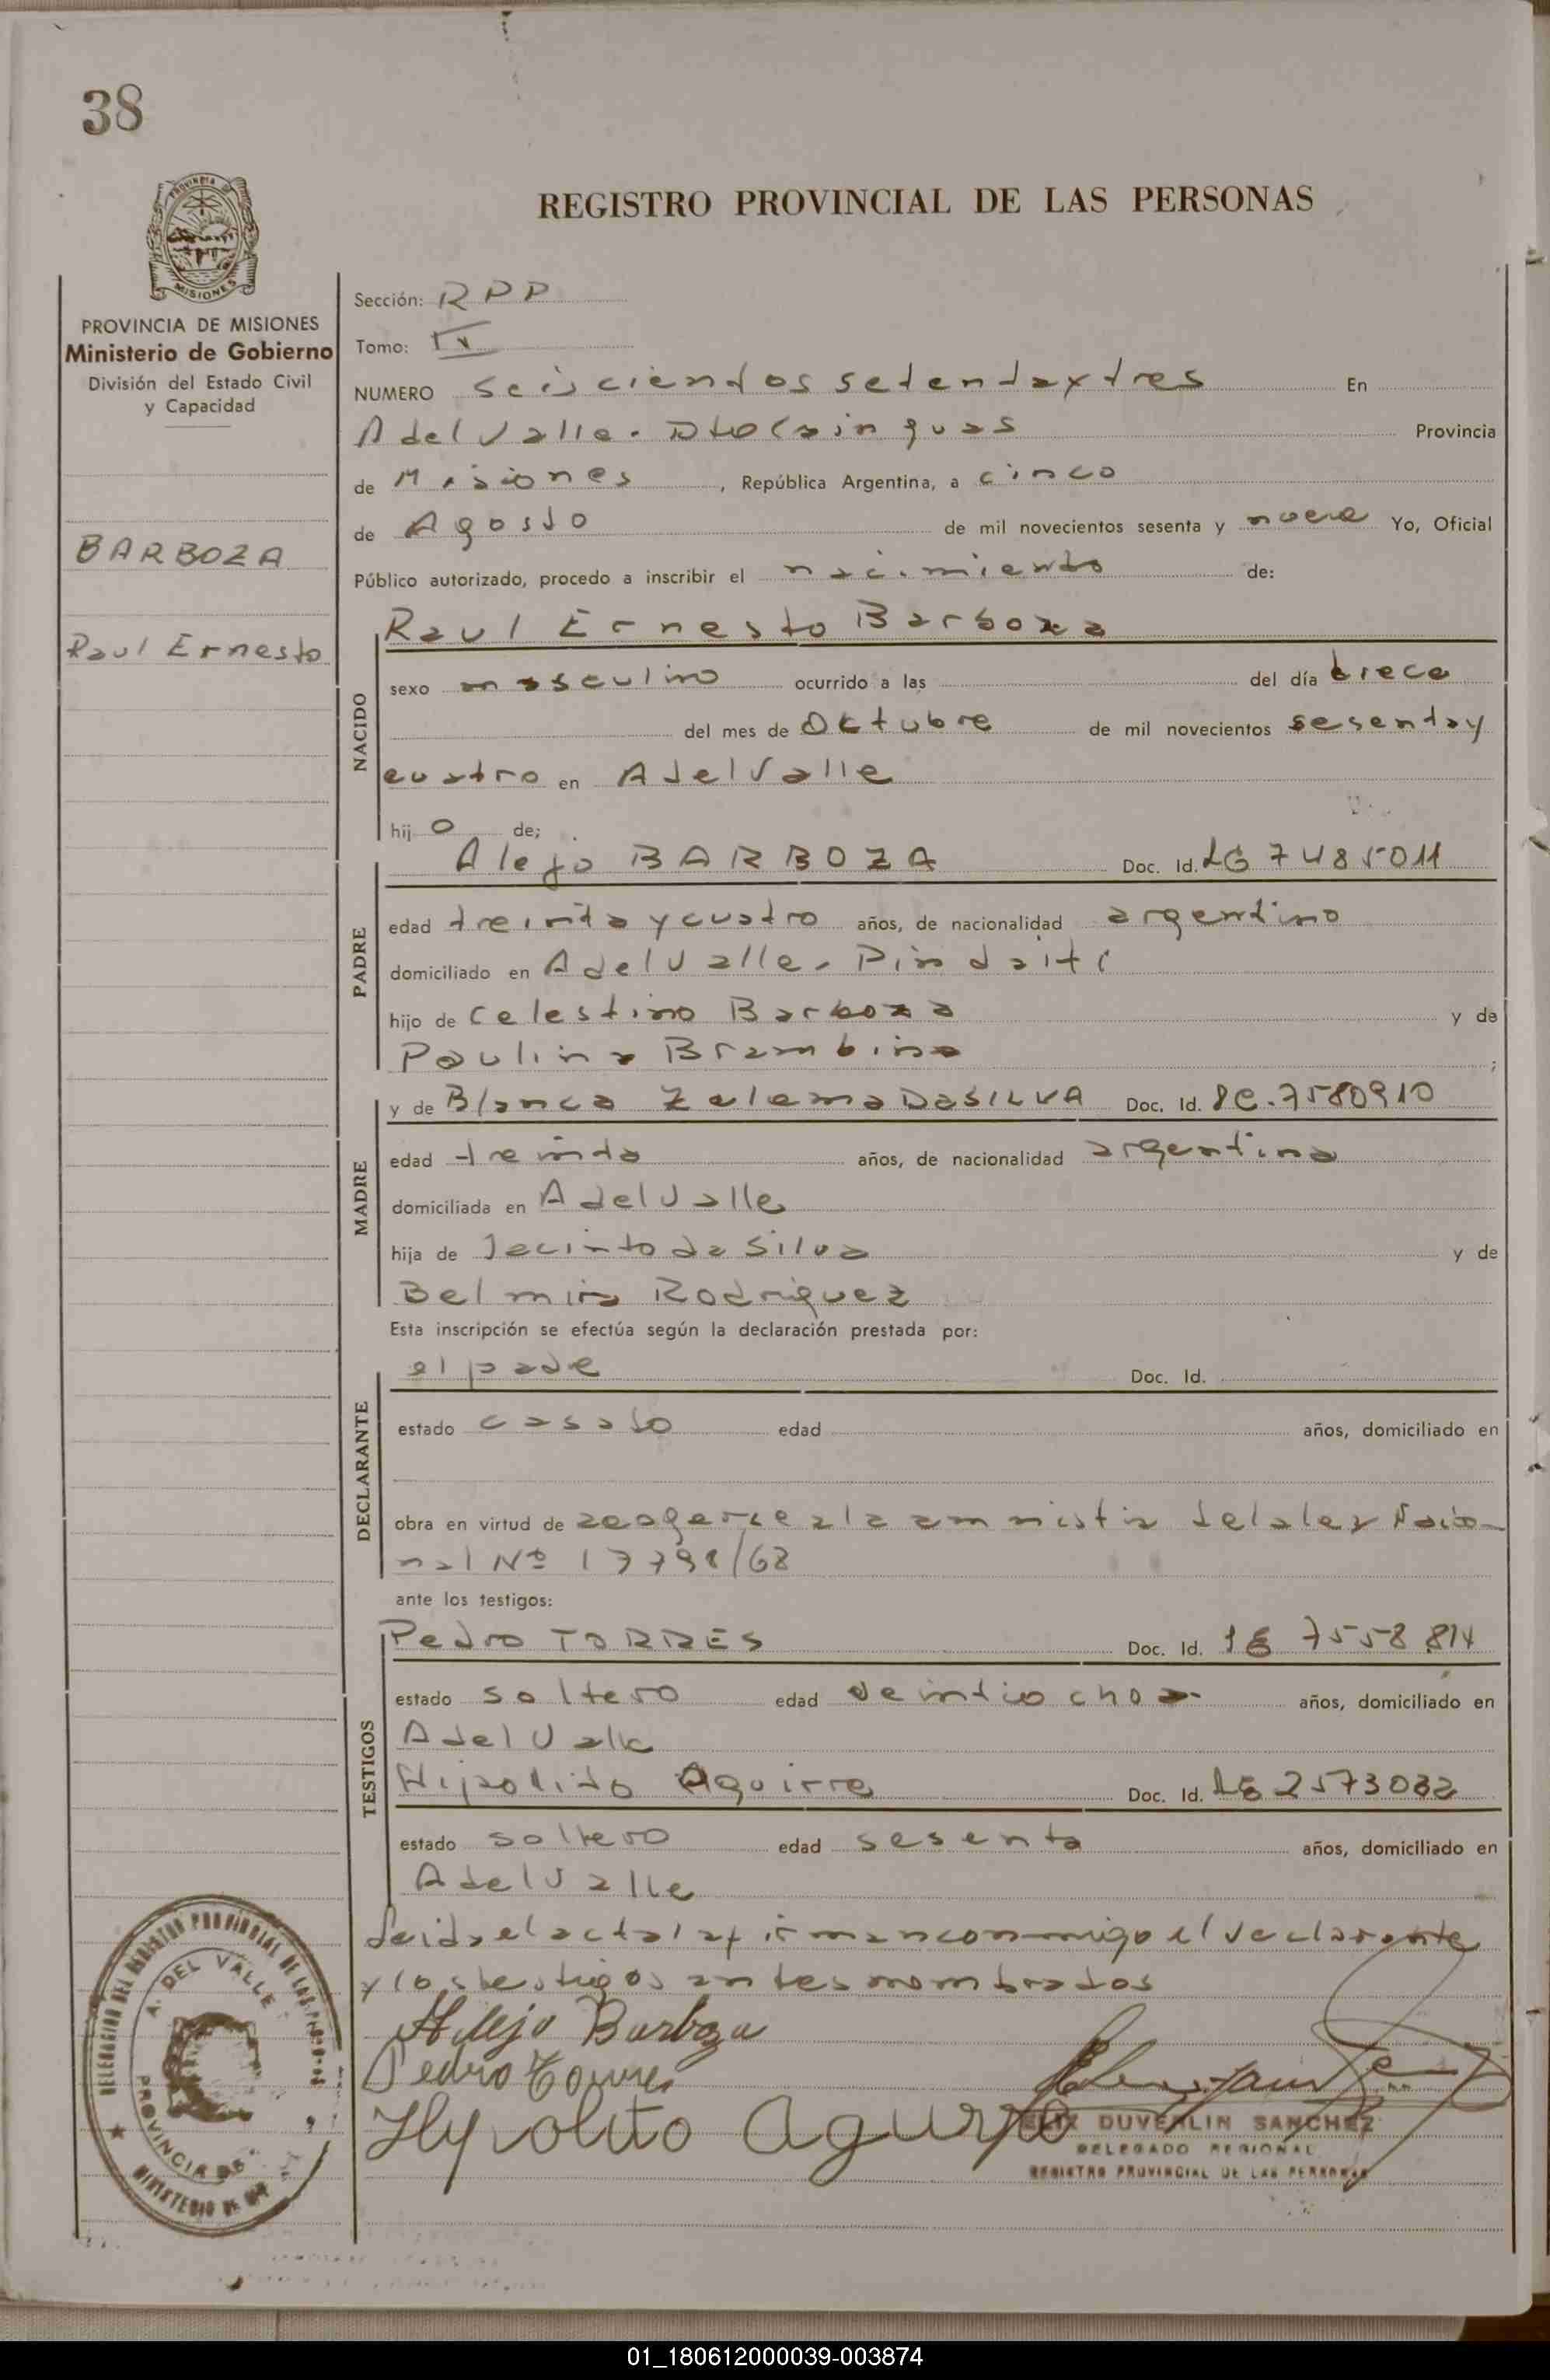 38
REGISTRO PROVINCIAL DE LAS PERSONAS
PROVINCIA DE MISIONES
Ministerio de Gobierno
División del Estado Civil
y Capacidad
BARBOZA
Raul Ernesto
Sección: RPP
Tomo: IV
NUMERO seiscientos setentaytres En
A del Valle. Dto Cainguas Provincia
de Misiones, República Argentina, a cinco
de Agosto de mil novecientos sesenta y nueve Yo, Oficial
Público autorizado, procedo a inscribir el nacimiento de:
Raul Ernesto Barboza
NACIDO
sexo masculino ocurrido a las del día trece
del mes de Octubre de mil novecientos sesentay
cuatro en A del Valle
hijo de;
PADRE
Alejo BARBOZA Doc. Id. LE 7485011
edad treinta y cuatro años, de nacionalidad argentino
domiciliado en A del Valle. Pindaiti
hijo de Celestino Barboza y de
Paulina Brambina ;
MADRE
y de Blanca Zulema DaSILVA Doc. Id. 7580910
edad treinta años, de nacionalidad argentina
domiciliada en A del Valle
hija de Jacinto da Silva y de
Belmira Rodriguez
Esta inscripción se efectúa según la declaración prestada por:
DECLARANTE
el padre Doc. Id.
estado casado edad años, domiciliado en
obra en virtud de acogerse a la amnistia de la ley Nacio-
nal Nº 17791/68
ante los testigos:
TESTIGOS
Pedro TORRES Doc. Id. LE 7558814
estado soltero edad veintiocho años, domiciliado en
A del Valle
Hipolito Aguirre Doc. Id. LE 2573032
estado soltero edad sesenta años, domiciliado en
A del Valle
Leida el acta la firman conmigo el declarante
y los testigos antes nombrados
Alejo Barboza
Pedro Torres
Hypolito Aguirre
FELIX DUVERLIN SANCHEZ
DELEGADO REGIONAL
REGISTRO PROVINCIAL DE LAS PERSONAS
DELEGACION DEL REGISTRO PROVINCIAL DE LAS PERSONAS
A. DEL VALLE
PROVINCIA DE
MINISTERIO DE
01_180612000039-003874